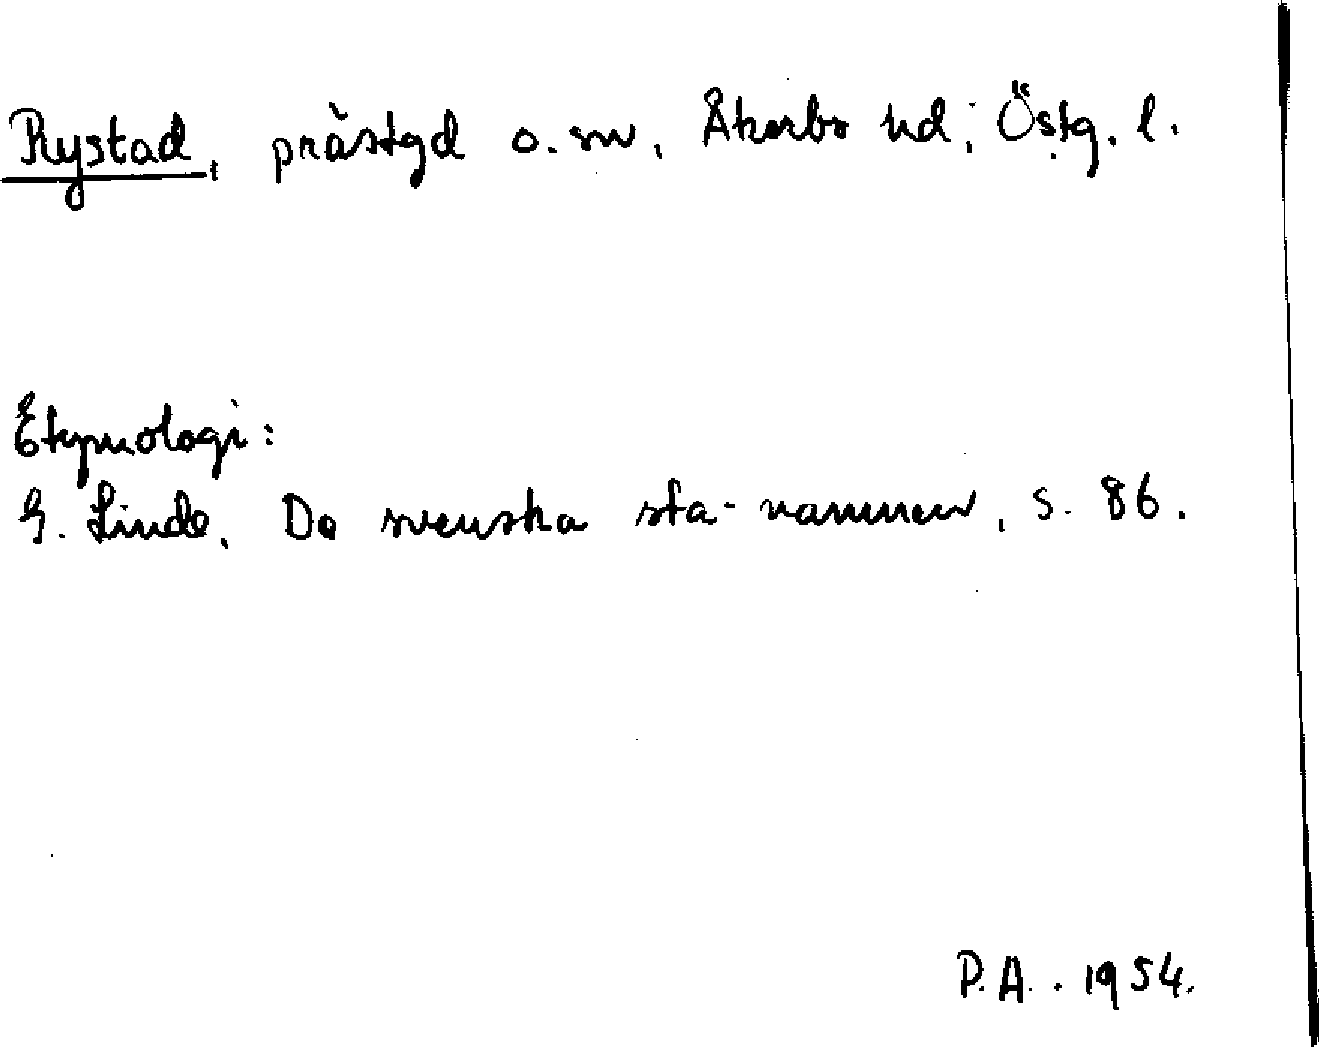 Rystad, prästgd o. sn, Åkerbo hd, Östg. l.
Etymologi:
G. Linde, De svenska sta-namnen, s. 86.
P.A. 1954.